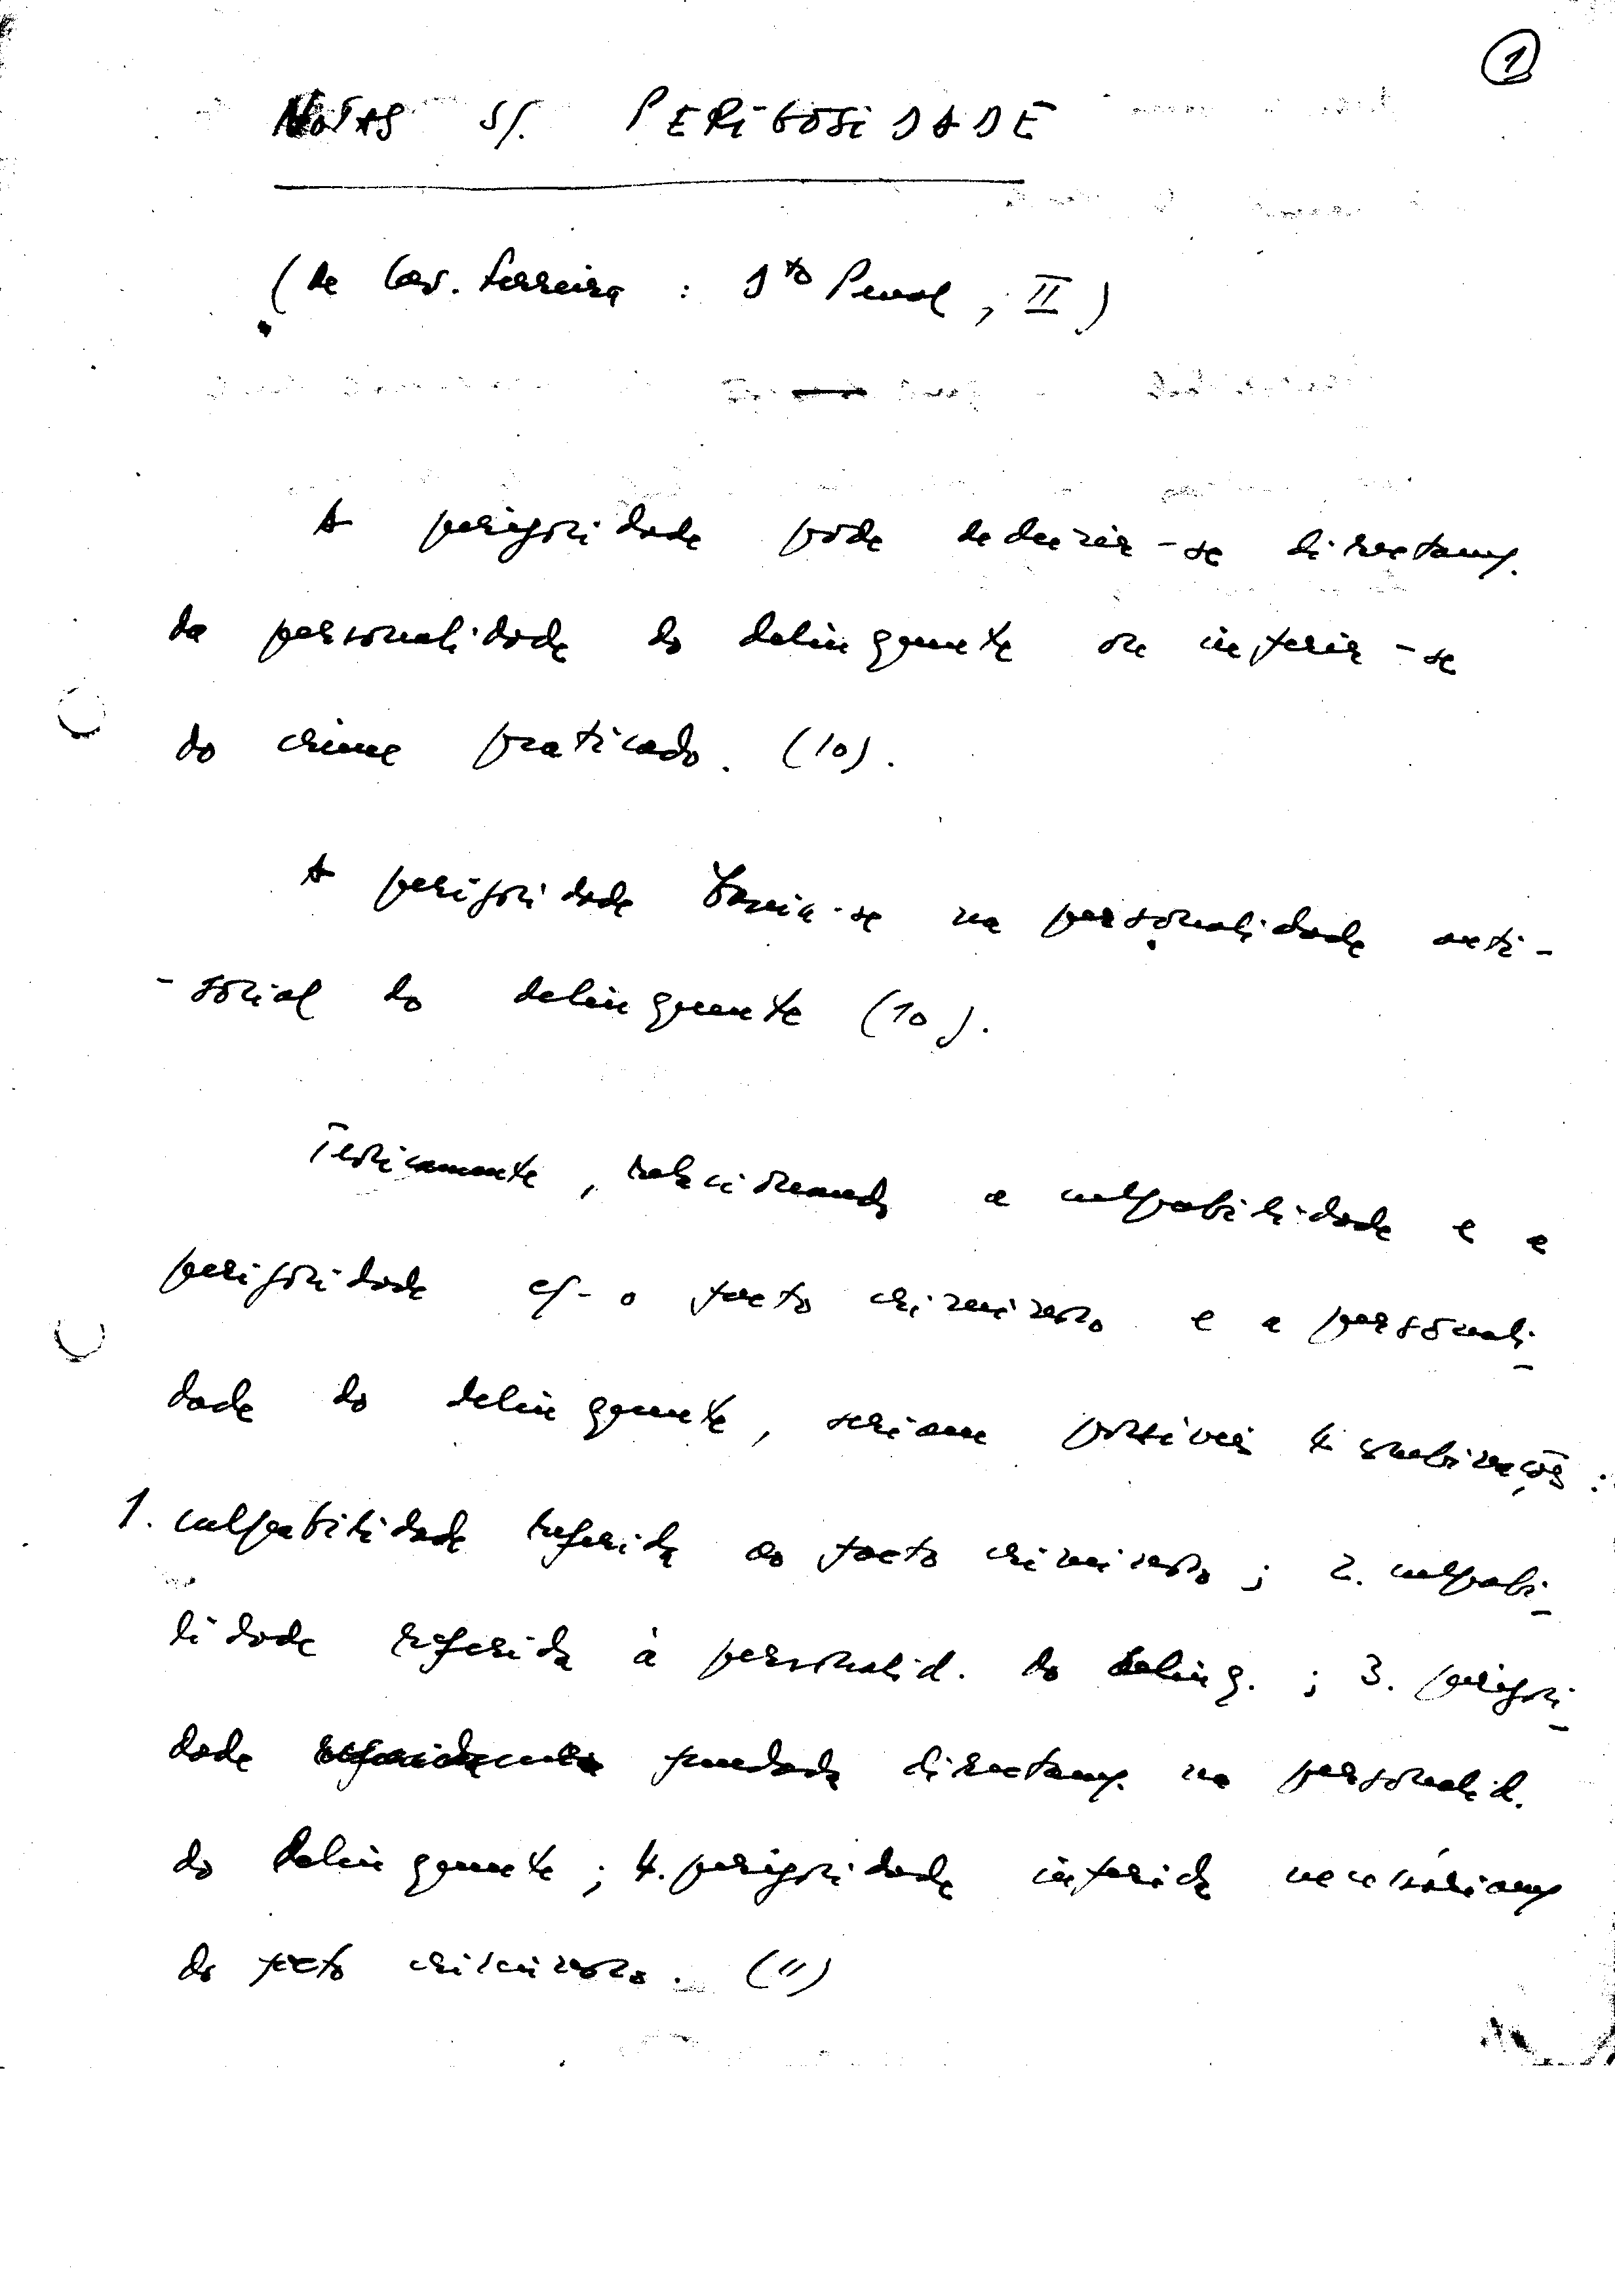 1
NOTAS s/. PERIGOSIDADE
(de Cav. Ferreira : Dto Penal, II)
A perigosidade pode deduzir-se directam/.
da personalidade do delinquente ou inferir-se
do crime praticado. (10).
A perigosidade baseia-se na personalidade anti-
-social do delinquente (10).
Teoricamente, relacionando a culpabilidade e a
perigosidade c/- o facto criminoso e a personali-
dade do delinquente, seriam possíveis 4 combinações :
1. culpabilidade referida ao facto criminoso ; 2. culpabi-
lidade referida à personalid. do delinq. ; 3. perigosi-
dade fundada directam/. na personalid.
do delinquente ; 4. perigosidade inferida necessàriam/
do facto criminoso. (11)